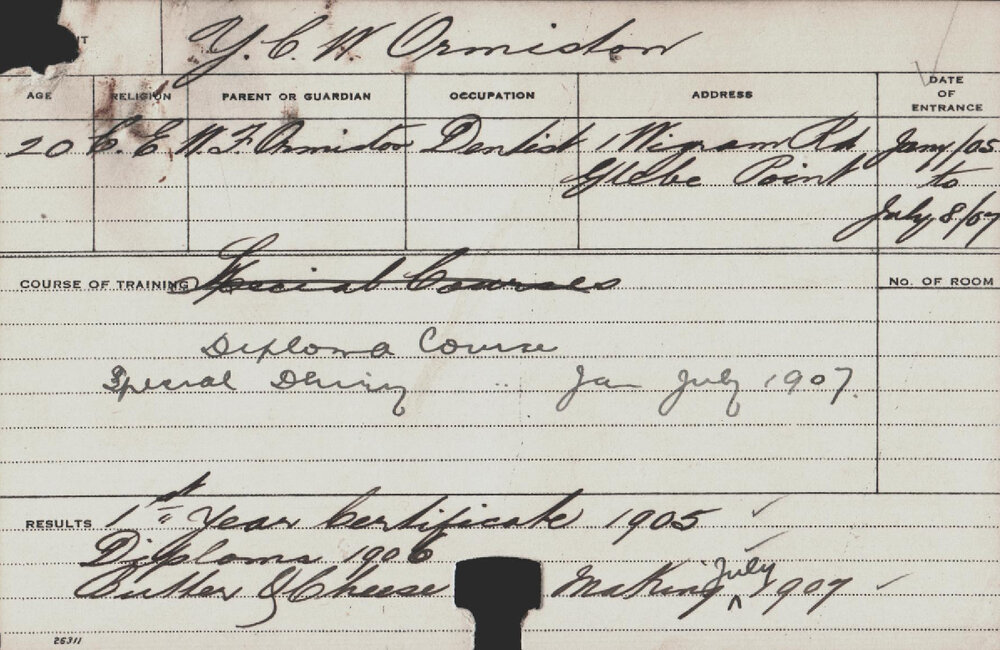 NT
Y. C. W. Ormiston
AGE RELIGION PARENT OR GUARDIAN OCCUPATION ADDRESS DATE OF ENTRANCE
20 C. E W. F Ormiston Dentist 1 Wigram Rd Jany/05
Glebe Point to
July 8/07
COURSE OF TRAINING Special Courses No. OF ROOM
Diploma Course
Special Dairy .. Jan July 1907.
RESULTS 1st Year Certificate 1905
Diploma 1906
Butter & Cheese Making July 1907
26311